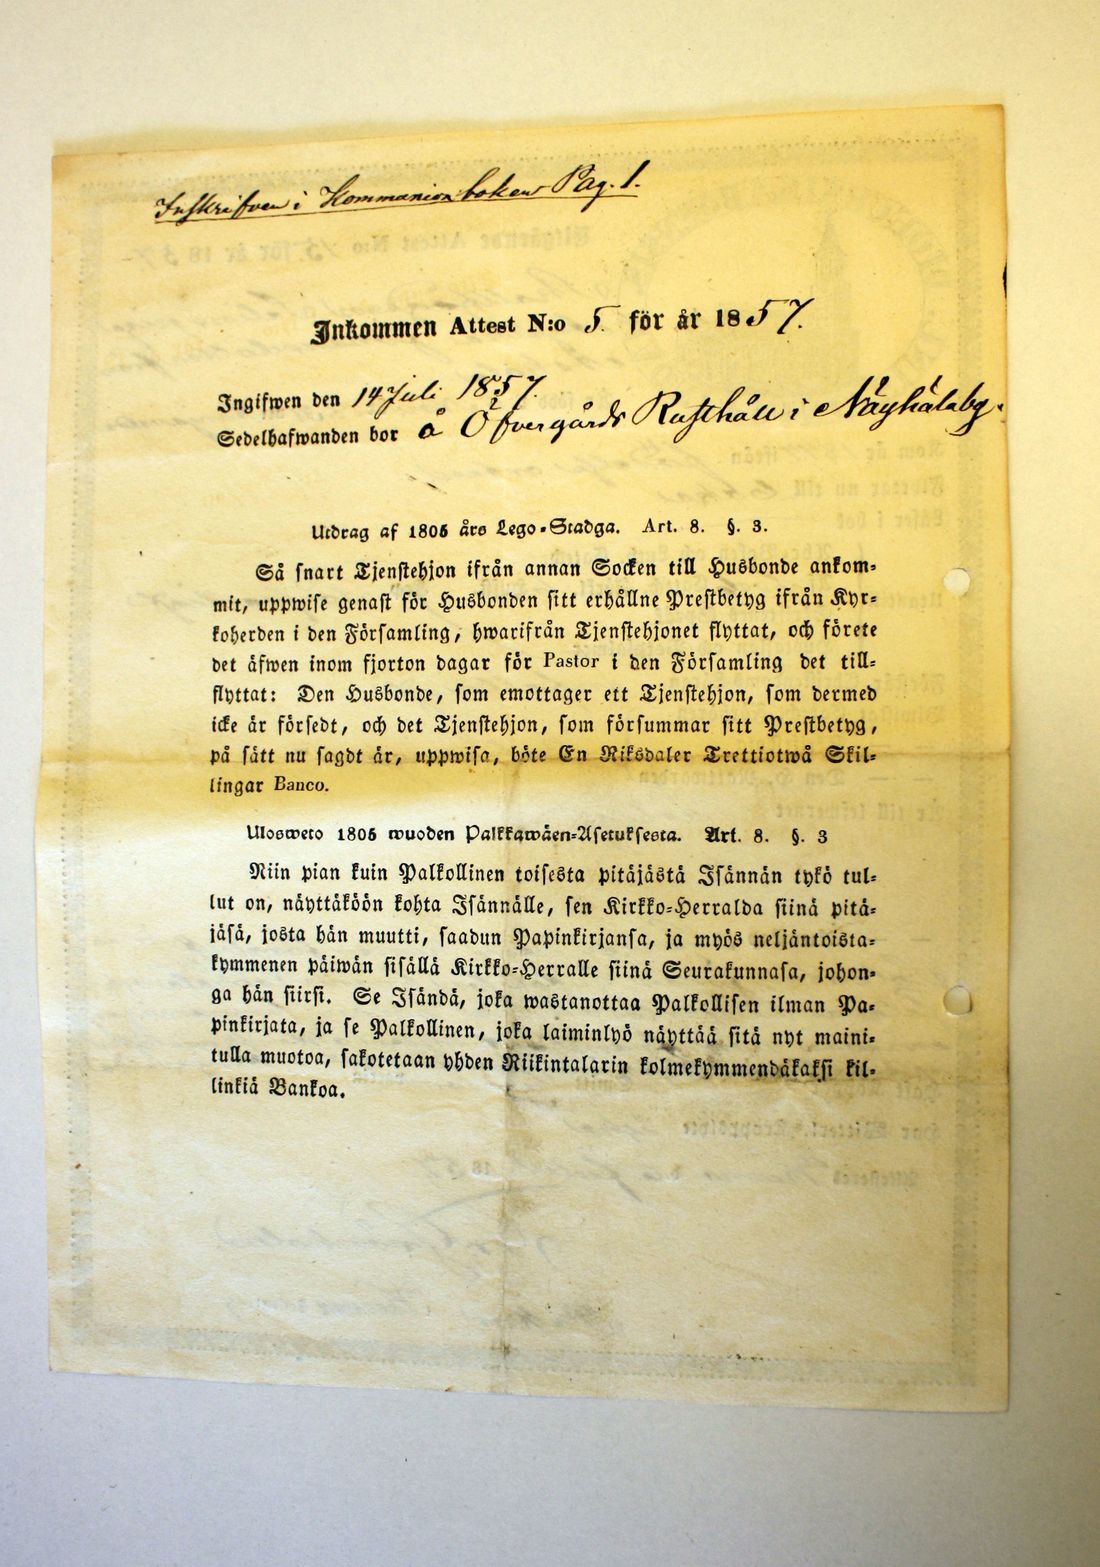 Inskrifven i Kommunionboken Pag. 1.
Inkommen Attest N:o 5. för år 1857.
Ingifwen den 14 Juli 1857.
Sedelhafwanden bor å Öfvergårds Rusthåll i
Utdrag af 1805 års Lego-Stadga. Art. 8. §. 3.
Så snart Tjenstehjon ifrån annan Socken till Husbonde ankom-
mit, uppwise genast för Husbonden sitt erhållne Prestbetyg ifrån Kyr-
koherden i den Församling, hwarifrån Tjenstehjonet flyttat, och förete
det äfwen inom fjorton dagar för Pastor i den Församling det till-
flyttat: Den Husbonde, som emottager ett Tjenstehjon, som dermed
icke är försedt, och det Tjenstehjon, som försummar sitt Prestbetyg,
på sätt nu sagdt är, uppwisa, böte En Riksdaler Trettiotwå Skil-
lingar Banco.
Ulosweto 1805 wuoden Palkkawäen-Asetuksesta. Art. 8. §. 3
Niin pian kuin Palkollinen toisesta pitäjästä Isännän tykö tul-
lut on, näyttäköön kohta Isännälle, sen Kirkko-Herralda siinä pitä-
jäsä, josta hän muutti, saadun Papinkirjansa, ja myös neljäntoista-
kymmenen päiwän sisällä Kirkko-Herralle siinä Seurakunnasa, johon-
ga hän siirsi. Se Isändä, joka wastanottaa Palkollisen ilman Pa-
pinkirjata, ja se Palkollinen, joka laiminlyö näyttää sitä nyt maini-
tulla muotoa, sakotetaan yhden Riikintalarin kolmekymmendäkaksi kil-
linkiä Bankoa.